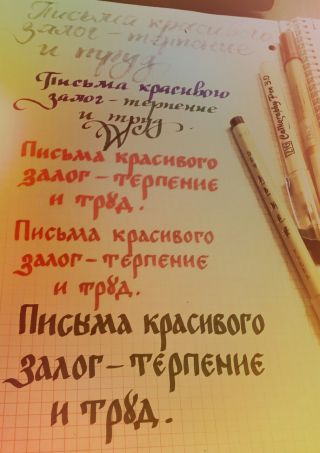 Письма красивого
залог - терпение
и труд
Письма красивого
залог - терпение
и труд
Письма красивого
залог - терпение
и труд.
Письма красивого
залог - терпение
и труд.
Письма красивого
залог - терпение
и труд.
Calligraphy Pen 3.0